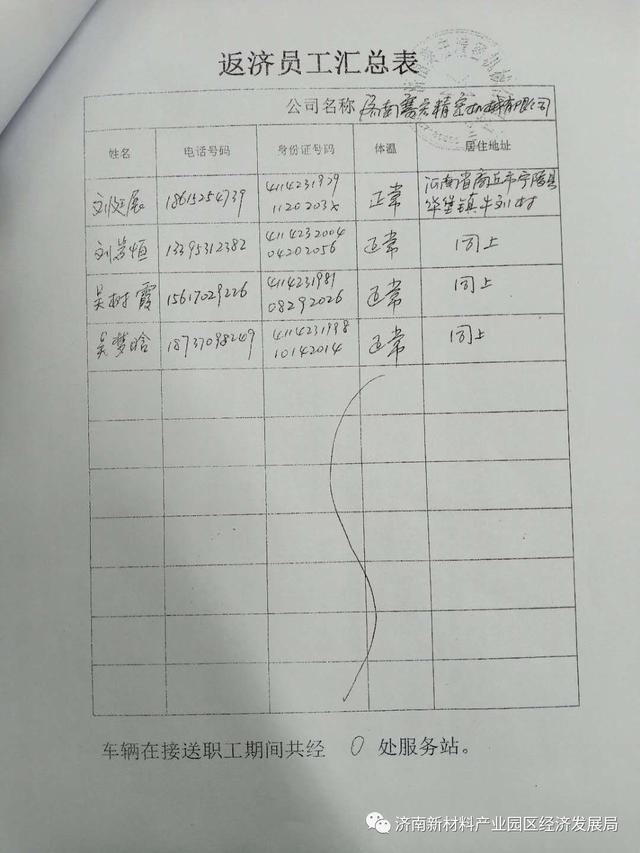 返济员工汇总表
公司名称 济南赛宏精密机械有限公司
姓名 电话号码 身份证号码 体温 居住地址
18615254739 4114231979 正常 河南省商丘市宁陵县
1120203X 华堡镇牛刘村
13395312382 4114232004 正常 同上
04202056
吴树霞 15617029226 4114231981 正常 同上
08292026
吴梦晗 18737098249 4114231998 正常 同上
10142014
车辆在接送职工期间共经 0 处服务站。
济南新材料产业园区经济发展局